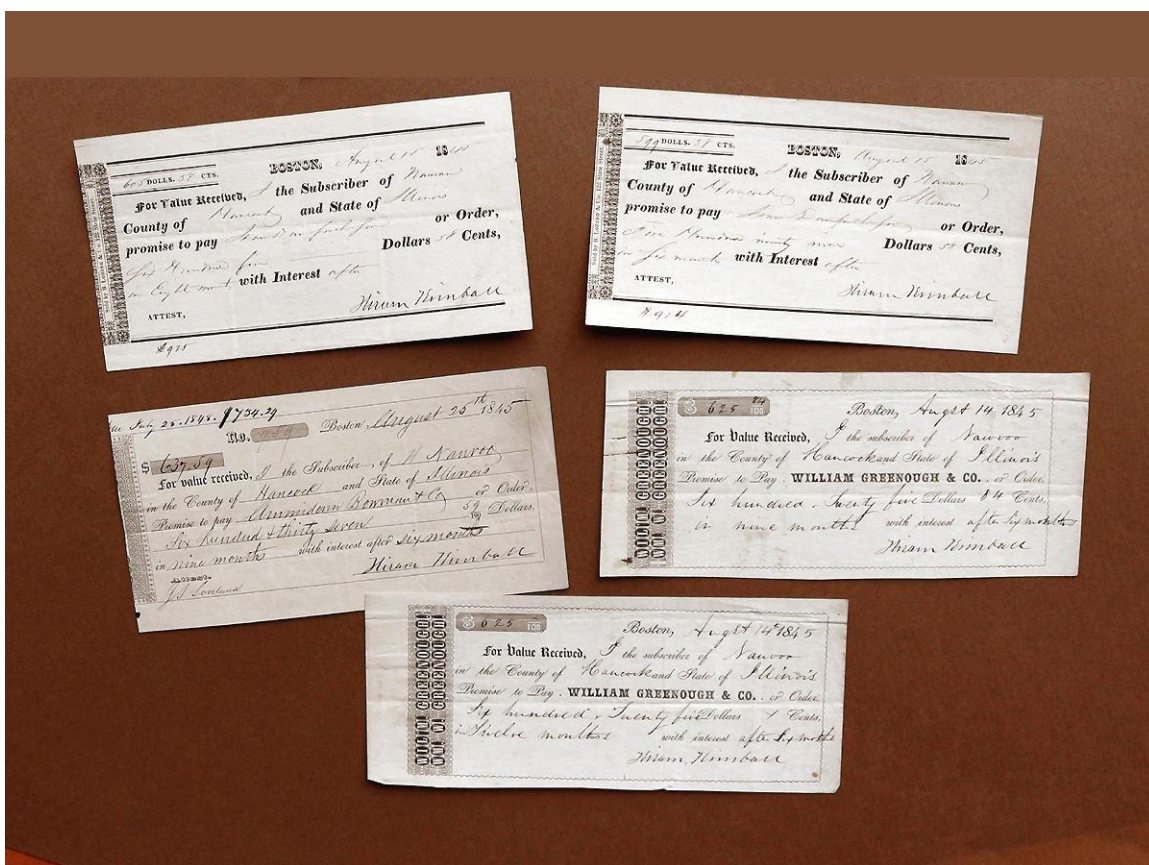 605 DOLLS. 58 CTS.
BOSTON, August 15 1845
For Value Received, I the Subscriber of Nauvoo
County of Hancock and State of Illinois
promise to pay or Order,
Six Hundred five Dollars 58 Cents,
in Eight months with Interest after
Hiram Kimball
ATTEST,
599 DOLLS. 58 CTS.
BOSTON, August 15 1845
For Value Received, I the Subscriber of Nauvoo
County of Hancock and State of Illinois
promise to pay or Order,
Five Hundred ninety nine Dollars 58 Cents,
in Six months with Interest after
Hiram Kimball
ATTEST,
# 924
July 25. 1848. $734.29
No. Boston, August 25th 1845
$ 637.59
For value received, I the Subscriber, of Nauvoo
in the County of Hancock and State of Illinois
Promise to pay Ammidown Bowman & Co or Order.
Six hundred & thirty seven 59/100 Dollars.
in nine months with interest after six months
Attest. Hiram Kimball
$ 625 84/100
Boston, Augst 14 1845
For Value Received, I the subscriber of Nauvoo
in the County of Hancock and State of Illinois
Promise to Pay WILLIAM GREENOUGH & CO. or Order.
Six hundred & Twenty five Dollars 84 Cents.
in nine months with interest after Six months
Hiram Kimball
$ 625 /100
Boston, Augst 14th 1845
For Value Received, I the subscriber of Nauvoo
in the County of Hancock and State of Illinois
Promise to Pay WILLIAM GREENOUGH & CO. or Order.
Six hundred & Twenty five Dollars Cents.
in Twelve months with interest after Six months
Hiram Kimball